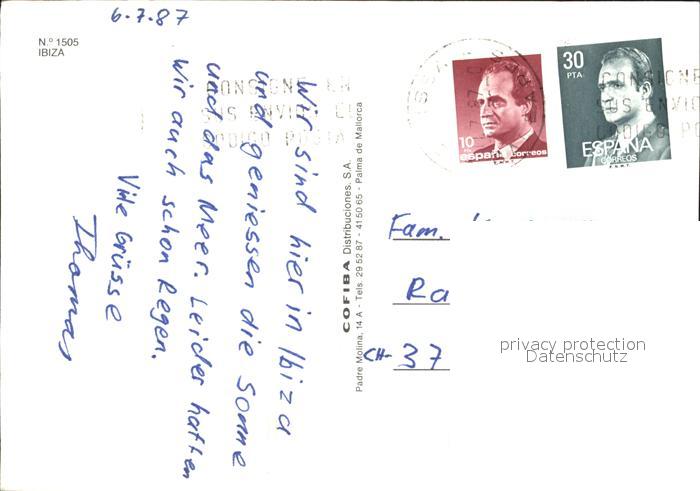 6.7.87
N.º 1505
IBIZA
Wir sind hier in Ibiza
und geniessen die Sonne
und das Meer. Leider hatten
wir auch schon Regen.
Viele Grüsse
Thomas
COFIBA Distribuciones, S.A.
Padre Molina, 14 A - Tels. 29 52 87 - 41 50 65 - Palma de Mallorca
CONSIGNE EN
SUS ENVIOS EL
CODIGO POSTAL
10
España correos
30
PTA
ESPAÑA
CORREOS
F.N.M.T.
CONSIGNE
SUS ENVI
CODIGO PO
Fam.
Ra
CH- 37
privacy protection
Datenschutz